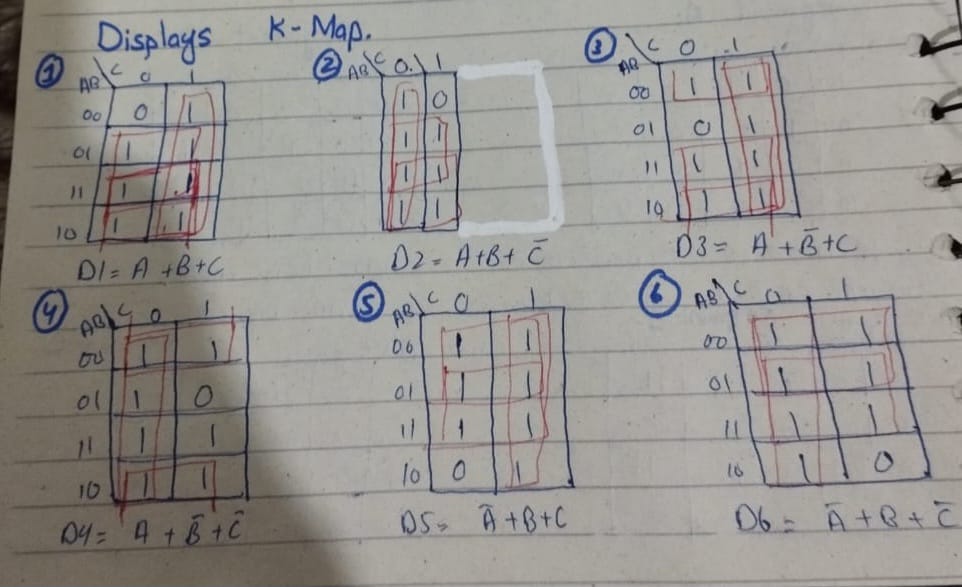 Displays K-Map.
① AB\C 0 1
00 0 1
01 1 1
11 1 1
10 1 1
D1 = A + B + C
② AB\C 0 1
1 0
1 1
1 1
1 1
D2 = A + B + C̄
③ AB\C 0 1
00 1 1
01 0 1
11 1 1
10 1 1
D3 = A + B̄ + C
④ AB\C 0 1
00 1 1
01 1 0
11 1 1
10 1 1
D4 = A + B̄ + C̄
⑤ AB\C 0 1
00 1 1
01 1 1
11 1 1
10 0 1
D5 = Ā + B + C
⑥ AB\C 0 1
00 1 1
01 1 1
11 1 1
10 1 0
D6 = Ā + B + C̄